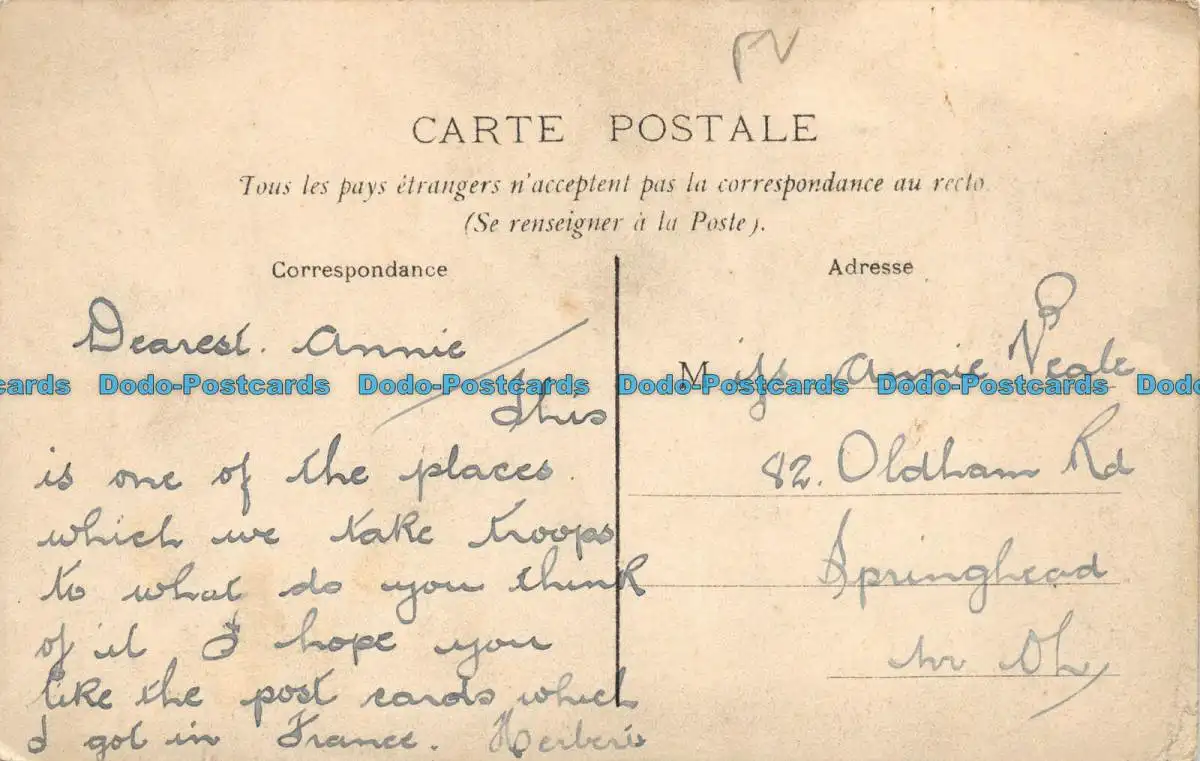 CARTE POSTALE
Tous les pays étrangers n'acceptent pas la correspondance au recto.
(Se renseigner à la Poste).
Correspondance
Dearest. Annie
This
is one of the places.
which we take troops
to what do you think
of it I hope you
like the post cards which
I got in France. Herbert
Adresse
Miss Annie Neale
82. Oldham Rd
Springhead
nr Oh
Dodo-Postcards Dodo-Postcards Dodo-Postcards Dodo-Postcards